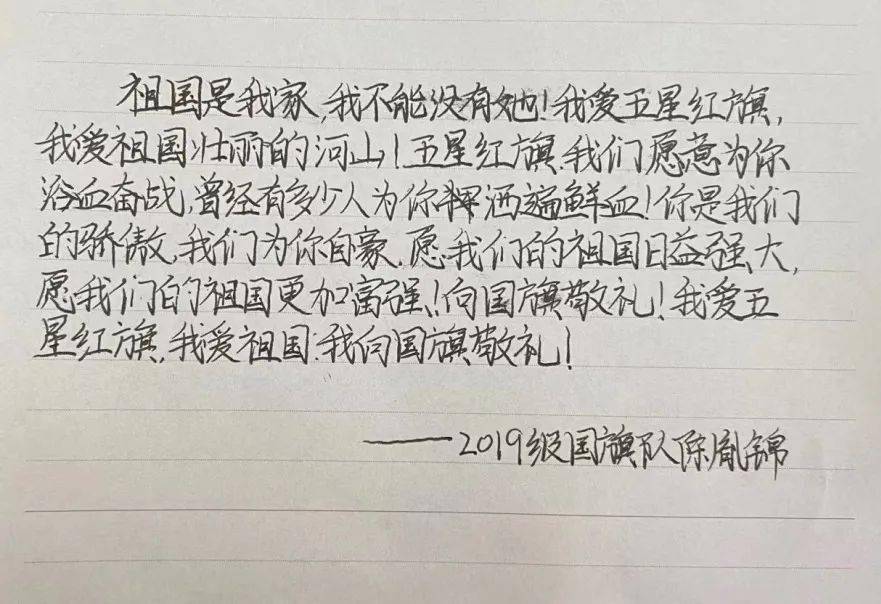 祖国是我家,我不能没有她!我爱五星红旗,
我爱祖国壮丽的河山!五星红旗,我们愿意为你
浴血奋战,曾经有多少人为你挥洒遍鲜血!你是我们
的骄傲,我们为你自豪.愿我们的祖国日益强大,
愿我们的祖国更加富强!向国旗敬礼!我爱五
星红旗,我爱祖国:我向国旗敬礼!
——2019级国旗队陈胤锦